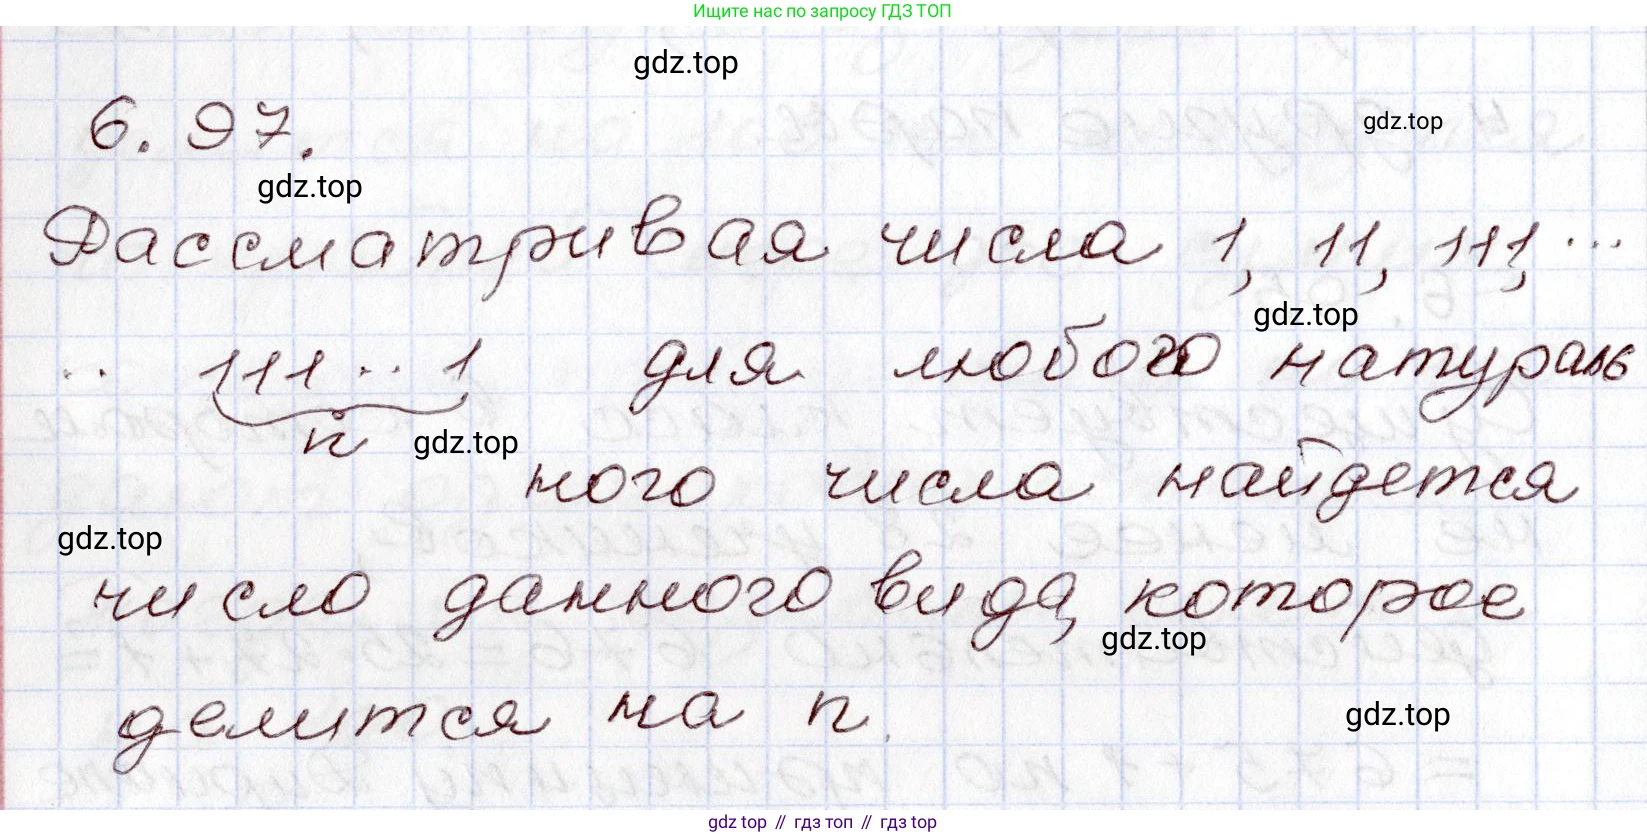 Ищите нас по запросу ГДЗ ТОП
gdz.top
6.97.
gdz.top
gdz.top
Рассматривая числа 1, 11, 111, ...
gdz.top
.. 111...1 для любого натураль
n
gdz.top
ного числа найдется
gdz.top
число данного вида, которое
gdz.top
делится на n.
gdz.top
gdz top // гдз топ // gdz top